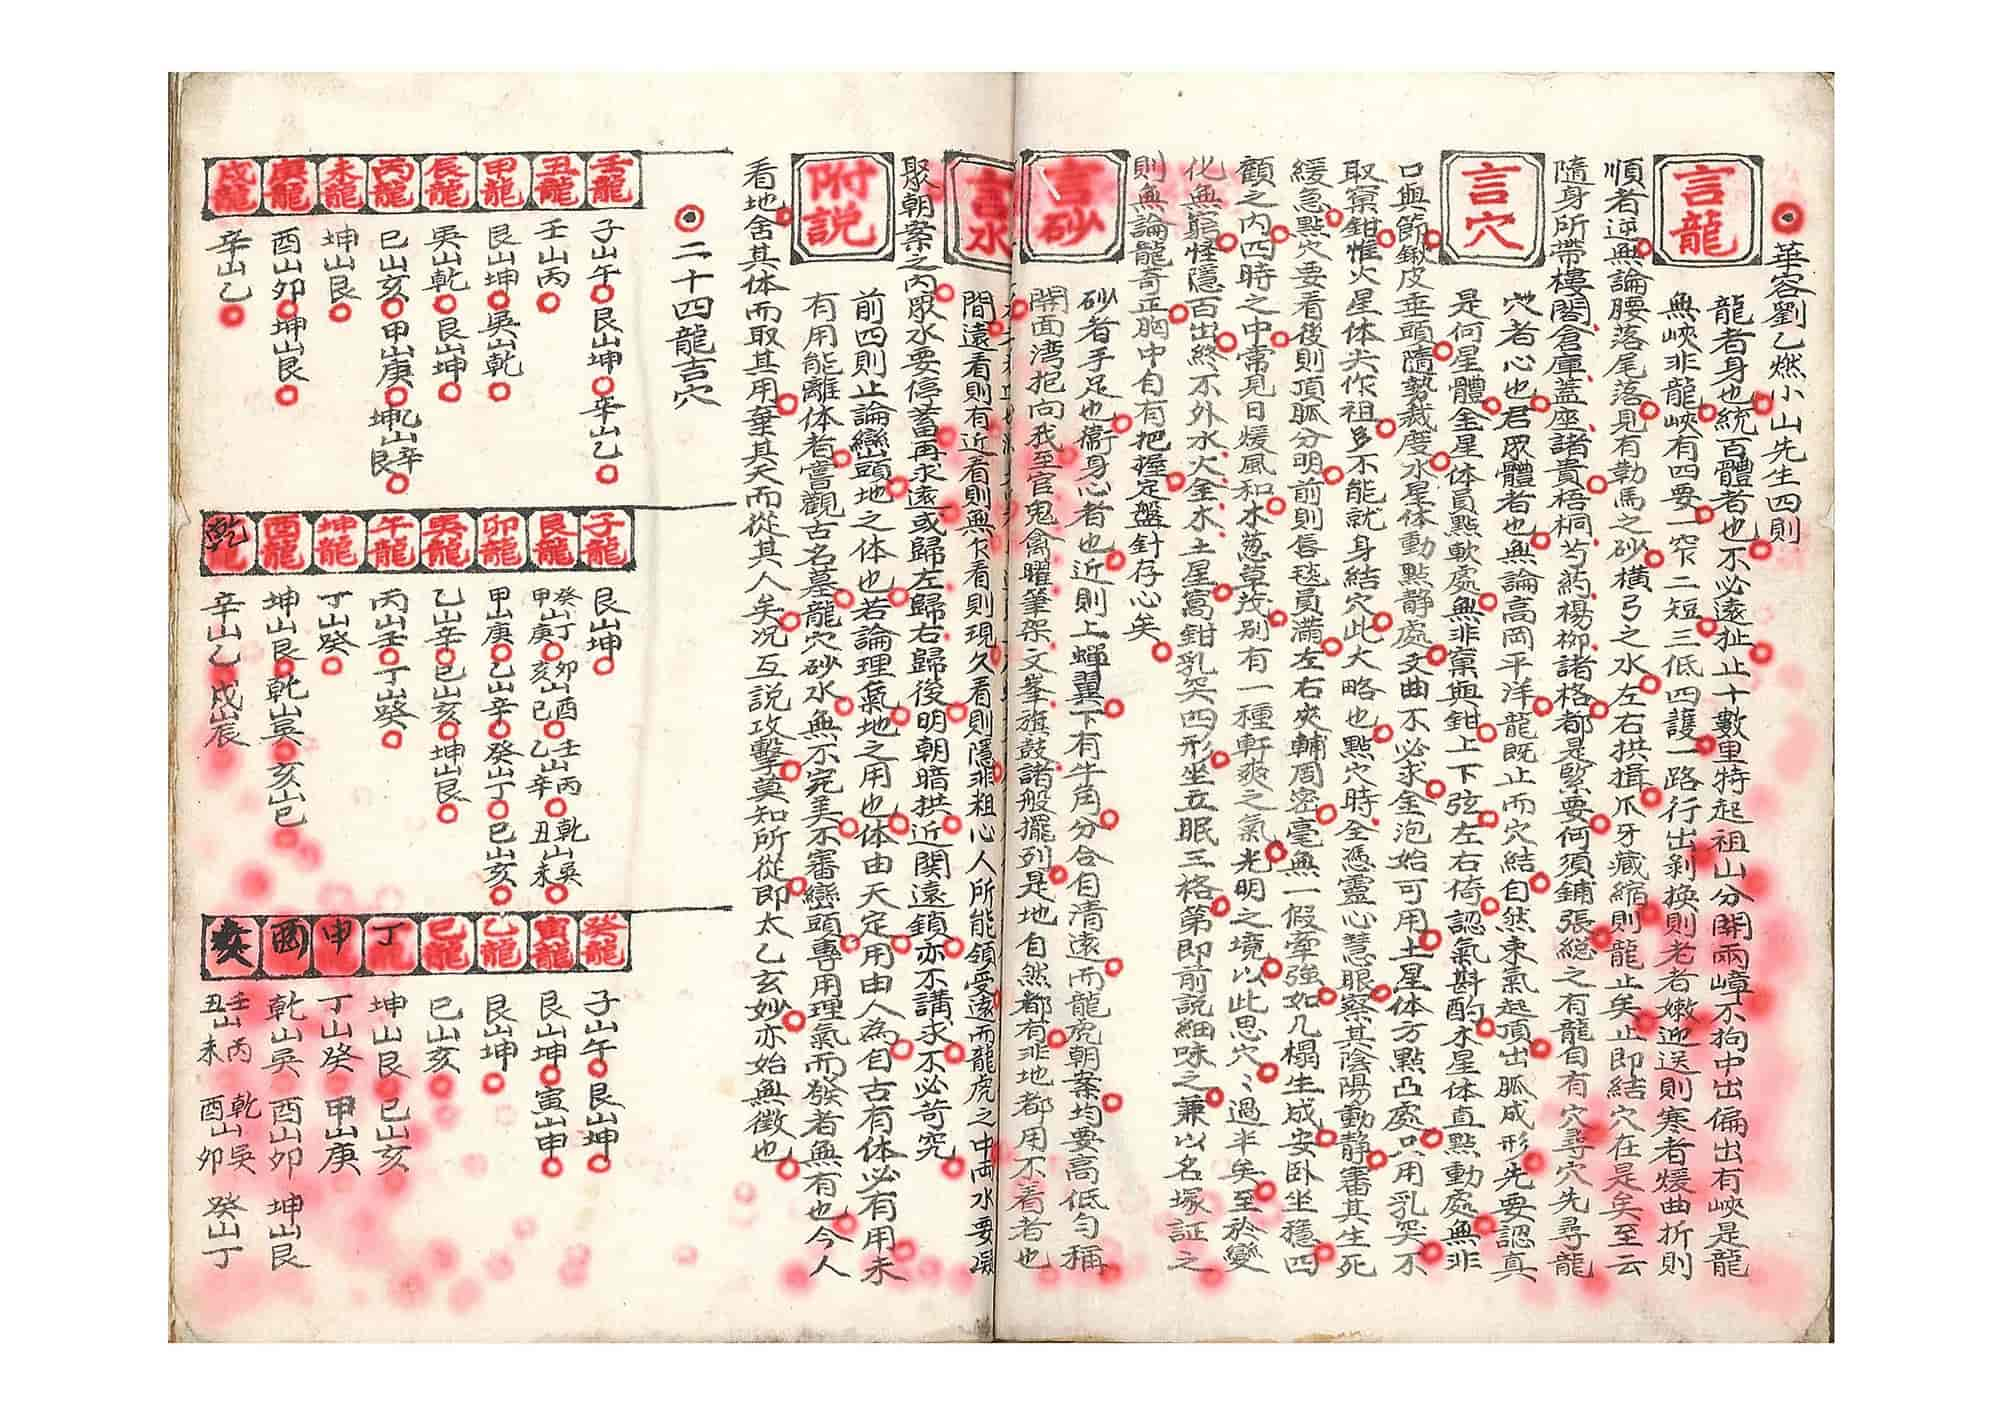 華容劉乙燃小山先生四則
言龍
龍者身也統百體者也不必遠扯止十數里特起祖山分開兩嶂不拘中出偏出有峽是龍
無峽非龍峽有四要一窄二短三低四護一路行出剝換則老者嫩迎送則寒者煖曲折則
順者逆無論腰落尾落見有勒馬之砂橫弓之水左右拱揖爪牙藏縮則龍止矣止即結穴在是矣至云
隨身所帶樓閣倉庫蓋座諸貴梧桐芍药楊柳諸格都是緊要何須鋪張総之有龍自有穴尋穴先尋龍
言穴
穴者心也君眾體者也無論高岡平洋龍既止而穴結自然束氣起頂出脈成形先要認真
是何星體金星体員點軟處無非窠與鉗上下弦左右倚認氣斟酌水星体直點動處無非
口與節鍬皮垂頭隨勢裁度水星体動點静處文曲不必求金泡始可用土星体方點凸處只用乳突不
取窠鉗惟火星体尖作祖多不能就身結穴此大略也點穴時全憑靈心慧眼察其陰陽動静審其生死
緩急點穴要看後則頂脈分明前則唇毯員满左右夾輔周密毫無一假牽強如几榻生成安卧坐穩四
顧之内四時之中常見日煖風和木葱草茂别有一種軒爽之氣光明之境以此思穴〻過半矣至於變
化無窮怪隱百出終不外水火金木土星窩鉗乳突四形坐立眠三格第即前説細味之兼以名塚証之
則無論龍奇正胸中自有把握定盤針存心矣
言砂
砂者手足也衞身心者也近則上蟬翼下有牛角分合自清遠而龍虎朝案均要高低匀稱
開面湾抱向我至官鬼禽曜筆架文峯旗鼓諸般擺列是地自然都有非地都用不着者也
言水
間遠看則有近看則無乍看則現久看則隱非粗心人所能領受遠而龍虎之中両水要濕
聚朝案之内眾水要停蓄再求遠或歸左歸右歸後明朝暗拱近関遠鎖亦不講求不必苛究
附説
前四則止論巒頭地之体也若論理氣地之用也体由天定用由人為自古有体必有用未
有用能離体者嘗觀古名墓龍穴砂水無不完美不審巒頭專用理氣而發者無有也今人
看地舍其体而取其用棄其天而從其人矣况互説攻擊莫知所從即太乙玄妙亦始無徵也
二十四龍吉穴
壬龍
子山午 艮山坤 辛山乙
丑龍
壬山丙
甲龍
艮山坤 巽山乾
辰龍
巽山乾 艮山坤
丙龍
巳山亥 甲山庚 乙山辛 坤山艮
未龍
坤山艮
庚龍
酉山卯 坤山艮
戌龍
辛山乙
子龍
艮山坤
艮龍
癸山丁 卯山酉 壬山丙 乾山巽
甲山庚 亥山巳 乙山辛 丑山未
卯龍
甲山庚 乙山辛 癸山丁 巳山亥
巽龍
乙山辛 巳山亥 坤山艮
午龍
丙山壬 丁山癸
坤龍
丁山癸
酉龍
坤山艮 乾山巽 亥山巳
乾龍
辛山乙 戌山辰
癸龍
子山午 艮山坤
寅龍
艮山坤 寅山申
乙龍
艮山坤
巳龍
巳山亥
丁
坤山艮 巳山亥
申
丁山癸 甲山庚
酉
乾山巽 酉山卯 坤山艮
亥
壬山丙 乾山巽 癸山丁
丑山未 酉山卯